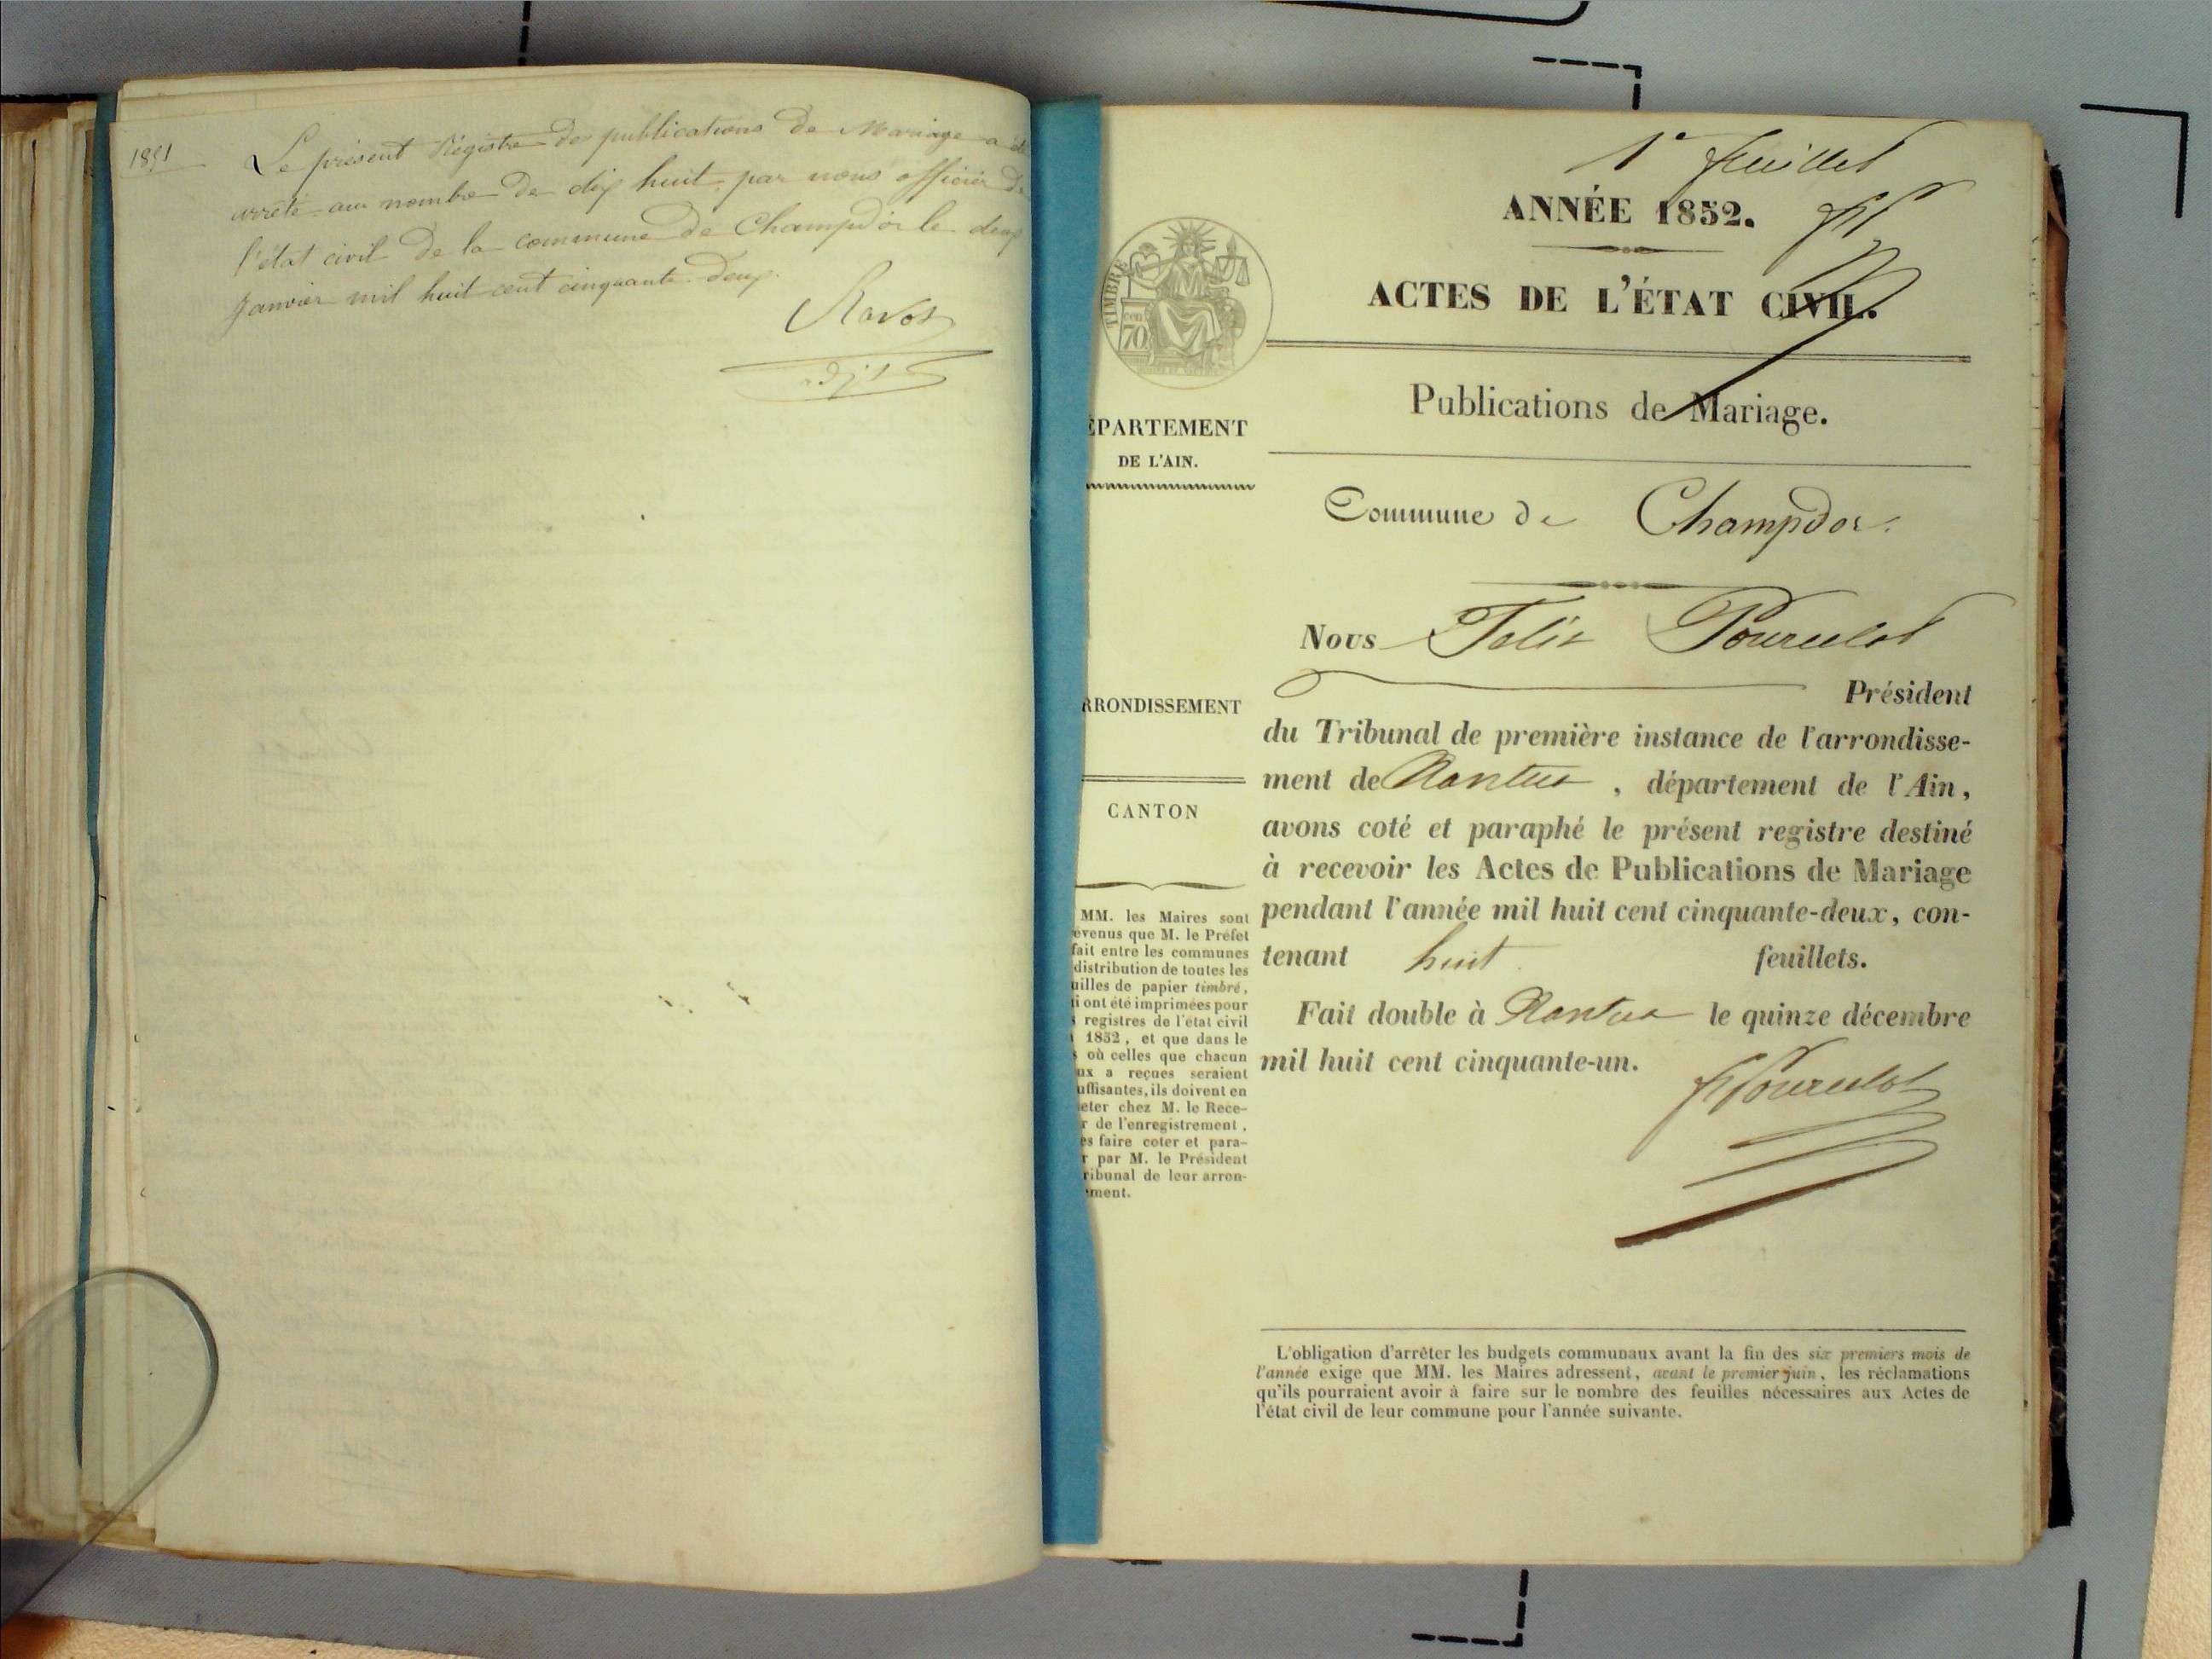 1851
Le présent Régistre de publications de Mariage a été
arrêté au nombre de dix huit, par nous officier de
l'état civil de la commune de Champdor le deux
Janvier mil huit cent cinquante deux.
adjt
1er feuillet
ANNÉE 1852.
ACTES DE L'ÉTAT CIVIL.
TIMBRE
cen
70
Publications de Mariage.
ÉPARTEMENT
DE L'AIN.
Commune de Champdor.
Nous Félix Pourculot
Président
RRONDISSEMENT
du Tribunal de première instance de l'arrondisse-
ment de Nantua, département de l'Ain,
CANTON
avons coté et paraphé le présent registre destiné
à recevoir les Actes de Publications de Mariage
pendant l'année mil huit cent cinquante-deux, con-
tenant huit feuillets.
Fait double à Nantua le quinze décembre
mil huit cent cinquante-un.
Pourculot
MM. les Maires sont
évenus que M. le Préfet
fait entre les communes
distribution de toutes les
uilles de papier timbré,
i ont été imprimées pour
registres de l'état civil
1852, et que dans le
s où celles que chacun
ux a reçues seraient
uffisantes, ils doivent en
eter chez M. le Rece-
r de l'enregistrement,
es faire coter et para-
r par M. le Président
ribunal de leur arron-
ment.
L'obligation d'arrêter les budgets communaux avant la fin des six premiers mois de
l'année exige que MM. les Maires adressent, avant le premier juin, les réclamations
qu'ils pourraient avoir à faire sur le nombre des feuilles nécessaires aux Actes de
l'état civil de leur commune pour l'année suivante.